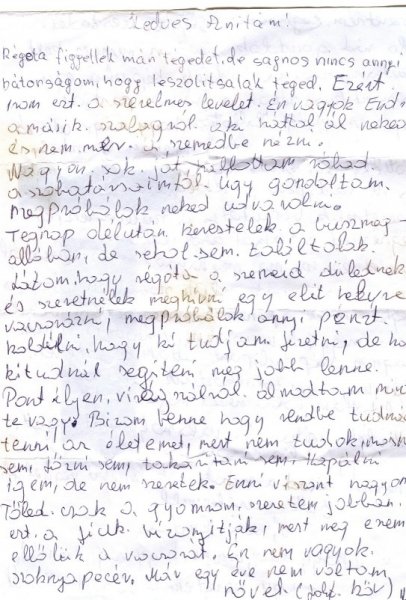 Kedves Anitám!
Régóta figyellek mán tégedet, de sajnos nincs annyi
bátorságom, hogy leszólitsalak téged. Ezért
irom ezt a szerelmes levelet. Én vagyok Endre
a másik szalagról aki háttal ál neked
és nem mer a szemedbe nézni.
Nagyon sok jót hallottam rólad
a szobatársaimtól. Úgy gondoltam
megpróbálok neked udvarolni.
Tegnap délután kerestelek a buszmeg-
állóban, de sehol sem találtalak.
Látom, hogy régóta a szemeid dülednek
és szeretnélek meghivni egy elit helyre
vacsorázni, megpróbálok annyi pénzt
koldulni, hogy ki tudjam fizetni, de ha
kitudnál segiteni még jobb lenne.
Pont ilyen virágszálról álmodtam mint
te vagy. Bizom benne hogy rendbe tudnád
tenni az életemet, mert nem tudok, mosni
sem, főzni sem, takaritani sem. Kapálni
igen, de nem szeretek. Enni viszont nagyon
Tőled csak a gyomrom szeretem jobban.
ezt a fiúk bizonyitják, mert még ezem
ellőlük a vacsorát. Én nem vagyok
szoknyapecér. Már egy éve nem voltam
nővel. (folyt. köv)